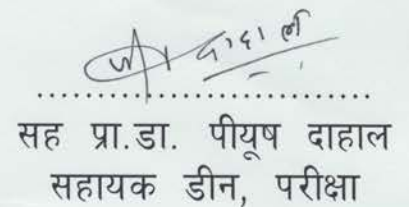 दाहाल
..............................
सह प्रा.डा. पीयूष दाहाल
सहायक डीन, परीक्षा